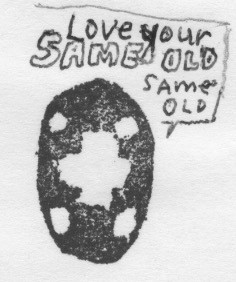 Love your
SAME OLD
SAME
OLD